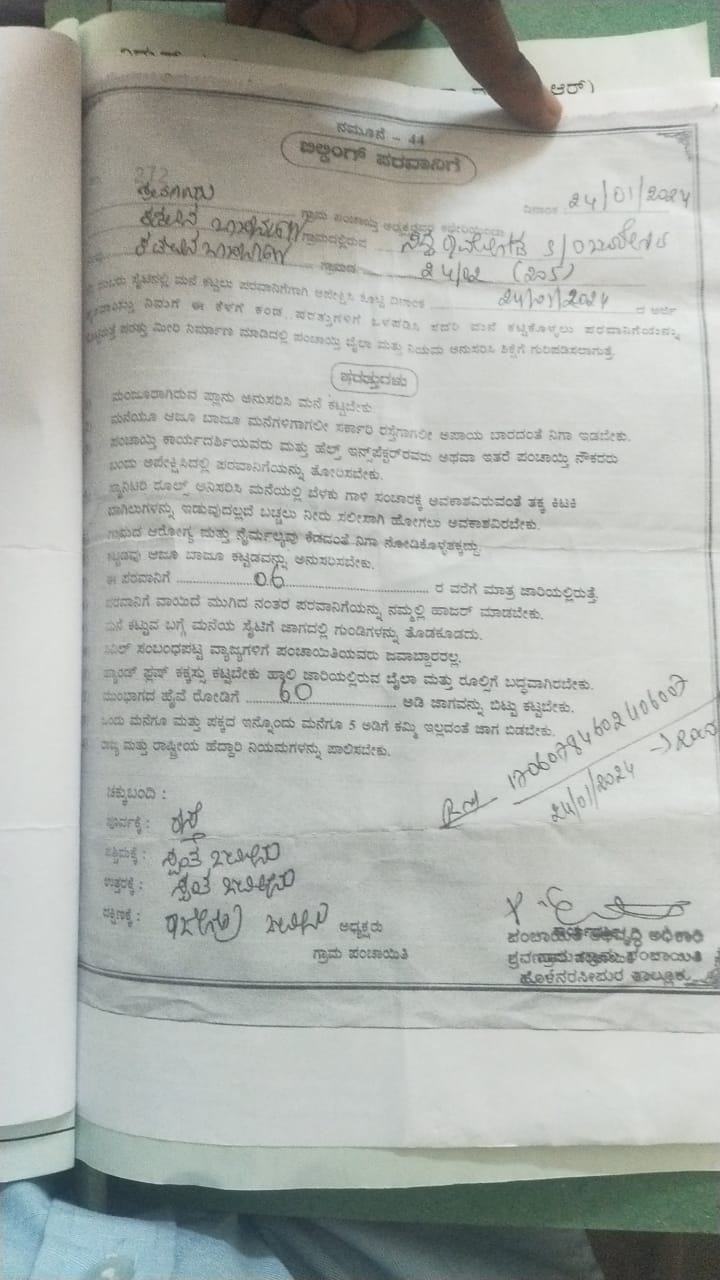 ಆರ್)
ನಮೂನೆ - 44
ಬಿಲ್ಡಿಂಗ್ ಪರವಾನಿಗೆ
272
ದಿನಾಂಕ 24/01/2024
ಗ್ರಾಮ ಪಂಚಾಯಿತಿ
ಗ್ರಾಮದಲ್ಲಿರುವ
ಗ್ರಾಮದ 24/02
ಸೈಟಿನಲ್ಲಿ ಮನೆ ಕಟ್ಟಲು ಪರವಾನಿಗೆಗಾಗಿ ಅಪೇಕ್ಷಿಸಿ ಕೊಟ್ಟ ದಿನಾಂಕ 24/01/2024 ರ ಅರ್ಜಿ
ನಿಮಗೆ ಈ ಕೆಳಗೆ ಕಂಡ ಷರತ್ತುಗಳಿಗೆ ಒಳಪಡಿಸಿ ಸದರಿ ಮನೆ ಕಟ್ಟಿಕೊಳ್ಳಲು ಪರವಾನಿಗೆಯನ್ನು
ಮೀರಿ ನಿರ್ಮಾಣ ಮಾಡಿದಲ್ಲಿ ಪಂಚಾಯ್ತಿ ಬೈಲಾ ಮತ್ತು ನಿಯಮ ಅನುಸರಿಸಿ ಶಿಕ್ಷೆಗೆ ಗುರಿಪಡಿಸಲಾಗುತ್ತೆ.
ಷರತ್ತುಗಳು
ಮಂಜೂರಾಗಿರುವ ಪ್ಲಾನು ಅನುಸರಿಸಿ ಮನೆ ಕಟ್ಟಬೇಕು.
ಮನೆಯೂ ಆಜೂ ಬಾಜೂ ಮನೆಗಳಿಗಾಗಲೀ ಸರ್ಕಾರಿ ರಸ್ತೆಗಾಗಲೀ ಅಪಾಯ ಬಾರದಂತೆ ನಿಗಾ ಇಡಬೇಕು.
ಪಂಚಾಯ್ತಿ ಕಾರ್ಯದರ್ಶಿಯವರು ಮತ್ತು ಹೆಲ್ತ್ ಇನ್ಸ್‌ಪೆಕ್ಟರ್‌ರವರು ಅಥವಾ ಇತರೆ ಪಂಚಾಯ್ತಿ ನೌಕರರು
ಬಂದು ಅಪೇಕ್ಷಿಸಿದಲ್ಲಿ ಪರವಾನಿಗೆಯನ್ನು ತೋರಿಸಬೇಕು.
ಸ್ಯಾನಿಟರಿ ರೂಲ್ಸ್ ಅನಿಸರಿಸಿ ಮನೆಯಲ್ಲಿ ಬೆಳಕು ಗಾಳಿ ಸಂಚಾರಕ್ಕೆ ಅವಕಾಶವಿರುವಂತೆ ತಕ್ಕ ಕಿಟಕಿ
ಬಾಗಿಲುಗಳನ್ನು ಇಡುವುದಲ್ಲದೆ ಬಚ್ಚಲು ನೀರು ಸಲೀಸಾಗಿ ಹೋಗಲು ಅವಕಾಶವಿರಬೇಕು.
ಗ್ರಾಮದ ಆರೋಗ್ಯ ಮತ್ತು ನೈರ್ಮಲ್ಯವು ಕೆಡದಂತೆ ನಿಗಾ ನೋಡಿಕೊಳ್ಳತಕ್ಕದ್ದು.
ಕಟ್ಟಡವು ಆಜೂ ಬಾಜೂ ಕಟ್ಟಡವನ್ನು ಅನುಸರಿಸಬೇಕು.
ಈ ಪರವಾನಿಗೆ 06 ರ ವರೆಗೆ ಮಾತ್ರ ಜಾರಿಯಲ್ಲಿರುತ್ತೆ.
ಪರವಾನಿಗೆ ವಾಯಿದೆ ಮುಗಿದ ನಂತರ ಪರವಾನಿಗೆಯನ್ನು ನಮ್ಮಲ್ಲಿ ಹಾಜರ್ ಮಾಡಬೇಕು.
ಮನೆ ಕಟ್ಟುವ ಬಗ್ಗೆ ಮನೆಯ ಸೈಟಿಗೆ ಜಾಗದಲ್ಲಿ ಗುಂಡಿಗಳನ್ನು ತೊಡಕೂಡದು.
ಸಿವಿಲ್ ಸಂಬಂಧಪಟ್ಟ ವ್ಯಾಜ್ಯಗಳಿಗೆ ಪಂಚಾಯಿತಿಯವರು ಜವಾಬ್ದಾರರಲ್ಲ.
ಹ್ಯಾಂಡ್ ಫ್ಲಷ್ ಕಕ್ಕಸ್ಸು ಕಟ್ಟಬೇಕು ಹ್ಯಾಲಿ ಜಾರಿಯಲ್ಲಿರುವ ಬೈಲಾ ಮತ್ತು ರೂಲ್ಸಿಗೆ ಬದ್ಧವಾಗಿರಬೇಕು.
ಮುಂಭಾಗದ ಹೈವೆ ರೋಡಿಗೆ 60 ಅಡಿ ಜಾಗವನ್ನು ಬಿಟ್ಟು ಕಟ್ಟಬೇಕು.
ಒಂದು ಮನೆಗೂ ಮತ್ತು ಪಕ್ಕದ ಇನ್ನೊಂದು ಮನೆಗೂ 5 ಅಡಿಗೆ ಕಮ್ಮಿ ಇಲ್ಲದಂತೆ ಜಾಗ ಬಿಡಬೇಕು.
ರಾಜ್ಯ ಮತ್ತು ರಾಷ್ಟ್ರೀಯ ಹೆದ್ದಾರಿ ನಿಯಮಗಳನ್ನು ಪಾಲಿಸಬೇಕು.
24/01/2024
ಚಕ್ಕುಬಂದಿ :
ಪೂರ್ವಕ್ಕೆ : ರಸ್ತೆ
ಪಶ್ಚಿಮಕ್ಕೆ : ಸ್ವಂತ ಜಮೀನು
ಉತ್ತರಕ್ಕೆ : ಸ್ವಂತ ಜಮೀನು
ದಕ್ಷಿಣಕ್ಕೆ : ಜಮೀನು
ಅಧ್ಯಕ್ಷರು
ಗ್ರಾಮ ಪಂಚಾಯಿತಿ
ಪಂಚಾಯಿತಿ ಅಭಿವೃದ್ಧಿ ಅಧಿಕಾರಿ
ಪಂಚಾಯಿತಿ
ಹೊಳೆನರಸೀಪುರ ತಾಲ್ಲೂಕು